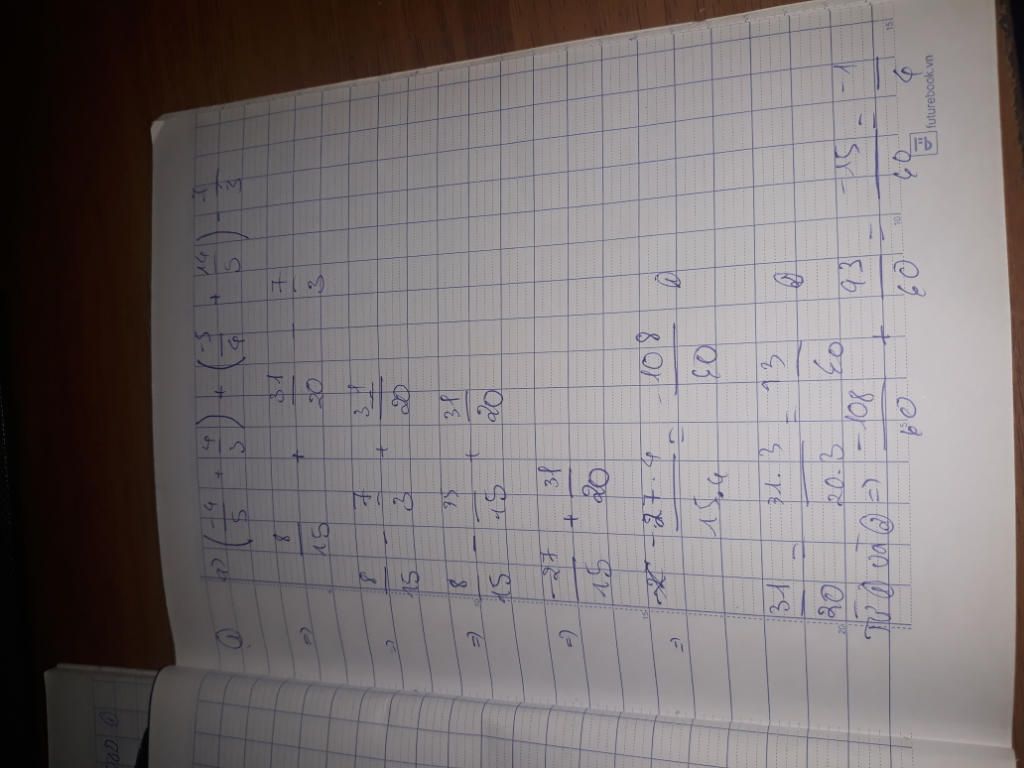 (-4/5 + 4/3) + (-5/4 + 14/5) - 7/3
=) 8/15 + 31/20 - 7/3
=) 8/15 - 7/3 + 31/20
=) 8/15 - 35/15 + 31/20
=) -27/15 + 31/20
=) -27.4/15.4 = -108/60 ①
31/20 = 31.3/20.3 = 93/60 ②
Từ ① và ② =) -108/60 + 93/60 = -15/60 = -1/6
futurebook.vn